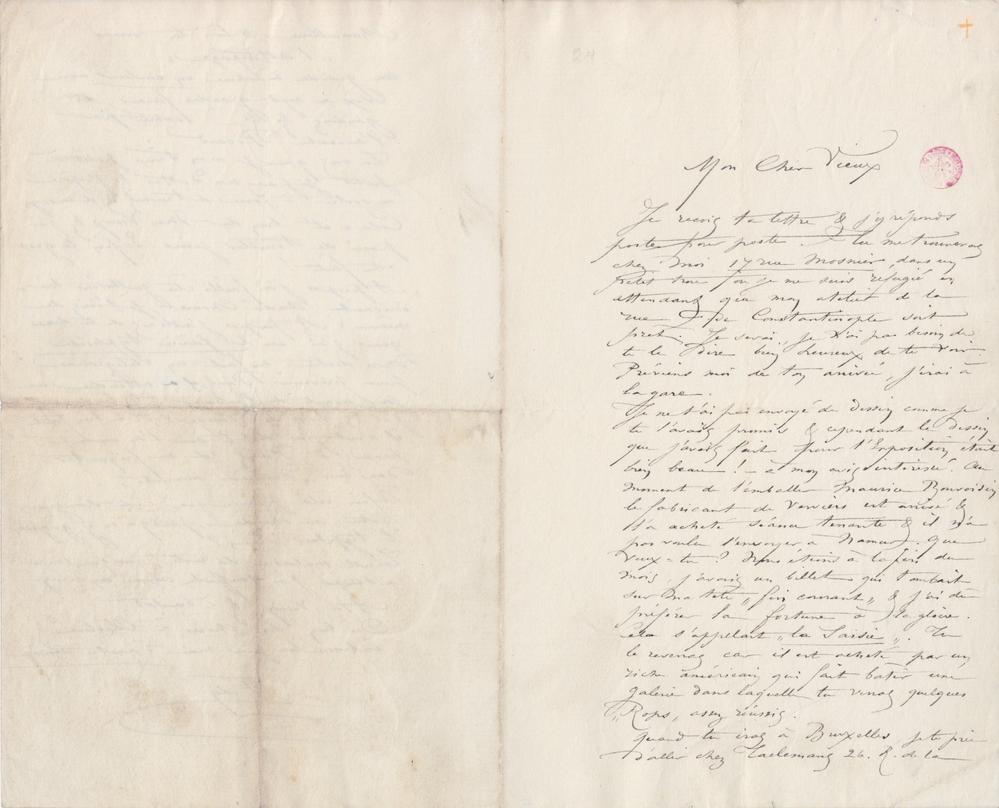 Mon Cher Vieux
Je reçois ta lettre & j'y réponds
poste pour poste. Tu me trouveras
chez moi 17 rue Mosnier, dans un
petit trou où je me suis réfugié en
attendant que mon atelier de la
rue de Constantinople soit
prêt. Je serai, je n'ai pas besoin de
te le dire bien heureux de te voir.
Préviens moi de ton arrivée, j'irai à
la gare.
Je ne t'ai pas envoyé de dessin comme je
te l'avais promis & cependant le dessin
que j'avais fait pour l'Exposition était
bien beau ! – à mon avis intéressé. Au
moment de l'emballer Maurice Bonvoisin
le fabricant de Verviers est arrivé &
l'a acheté séance tenante & il n'a
pas voulu l'envoyer à Namur. Que
veux-tu ? Nous étions à la fin du
mois, j'avais un billet qui tombait
sur ma tête „fin courant„ & j'ai dû
préférer la fortune à la gloire.
Cela s'appelait „la Saisie„. Tu
le reverras car il est acheté par un
riche américain qui fait batir une
galerie dans laquelle tu verras quelques
„Rops„ assez réussis.
Quand tu iras à Bruxelles, je te prie
d'aller chez Taelemans 26. R. de la